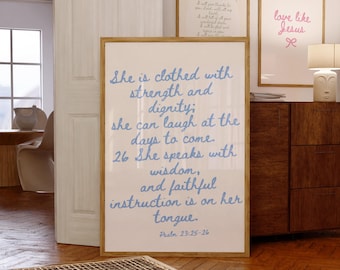 She is clothed with
strength and
dignity;
she can laugh at the
days to come.
26 She speaks with
wisdom,
and faithful
instruction is on her
tongue.
Psalm 23:25-26
love like
Jesus